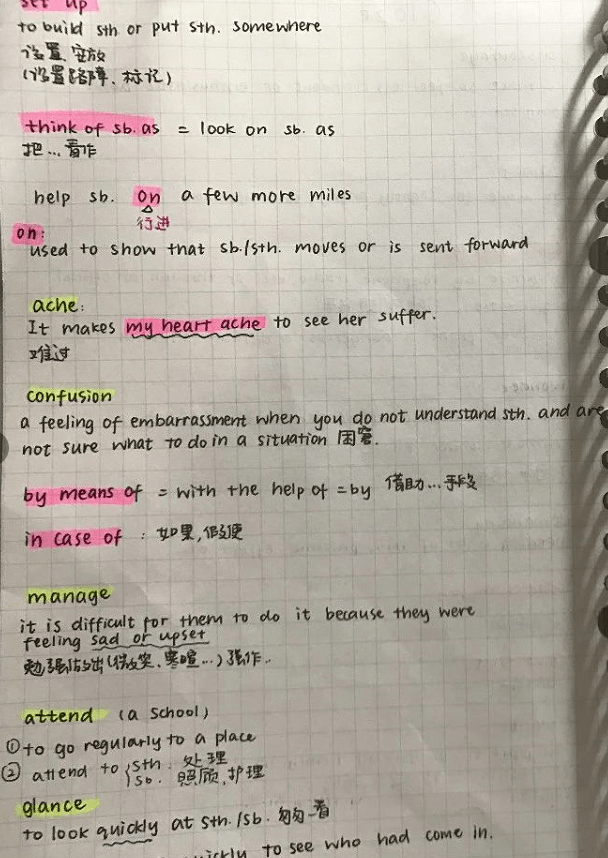 set up
to build sth or put sth. somewhere
设置、安放
(设置路障、标记)
think of sb. as = look on sb. as
把...看作
help sb. on a few more miles
行进
on:
used to show that sb./sth. moves or is sent forward
ache:
It makes my heart ache to see her suffer.
难过
confusion
a feeling of embarrassment when you do not understand sth. and are
not sure what to do in a situation 困窘.
by means of = with the help of = by 借助...手段
in case of : 如果,假使
manage
it is difficult for them to do it because they were
feeling sad or upset
勉强做出(微笑、寒暄...)强作..
attend (a school)
① to go regularly to a place
② attend to sth. 处理
sb. 照顾,护理
glance
to look quickly at sth./sb. 匆匆一看
quickly to see who had come in.